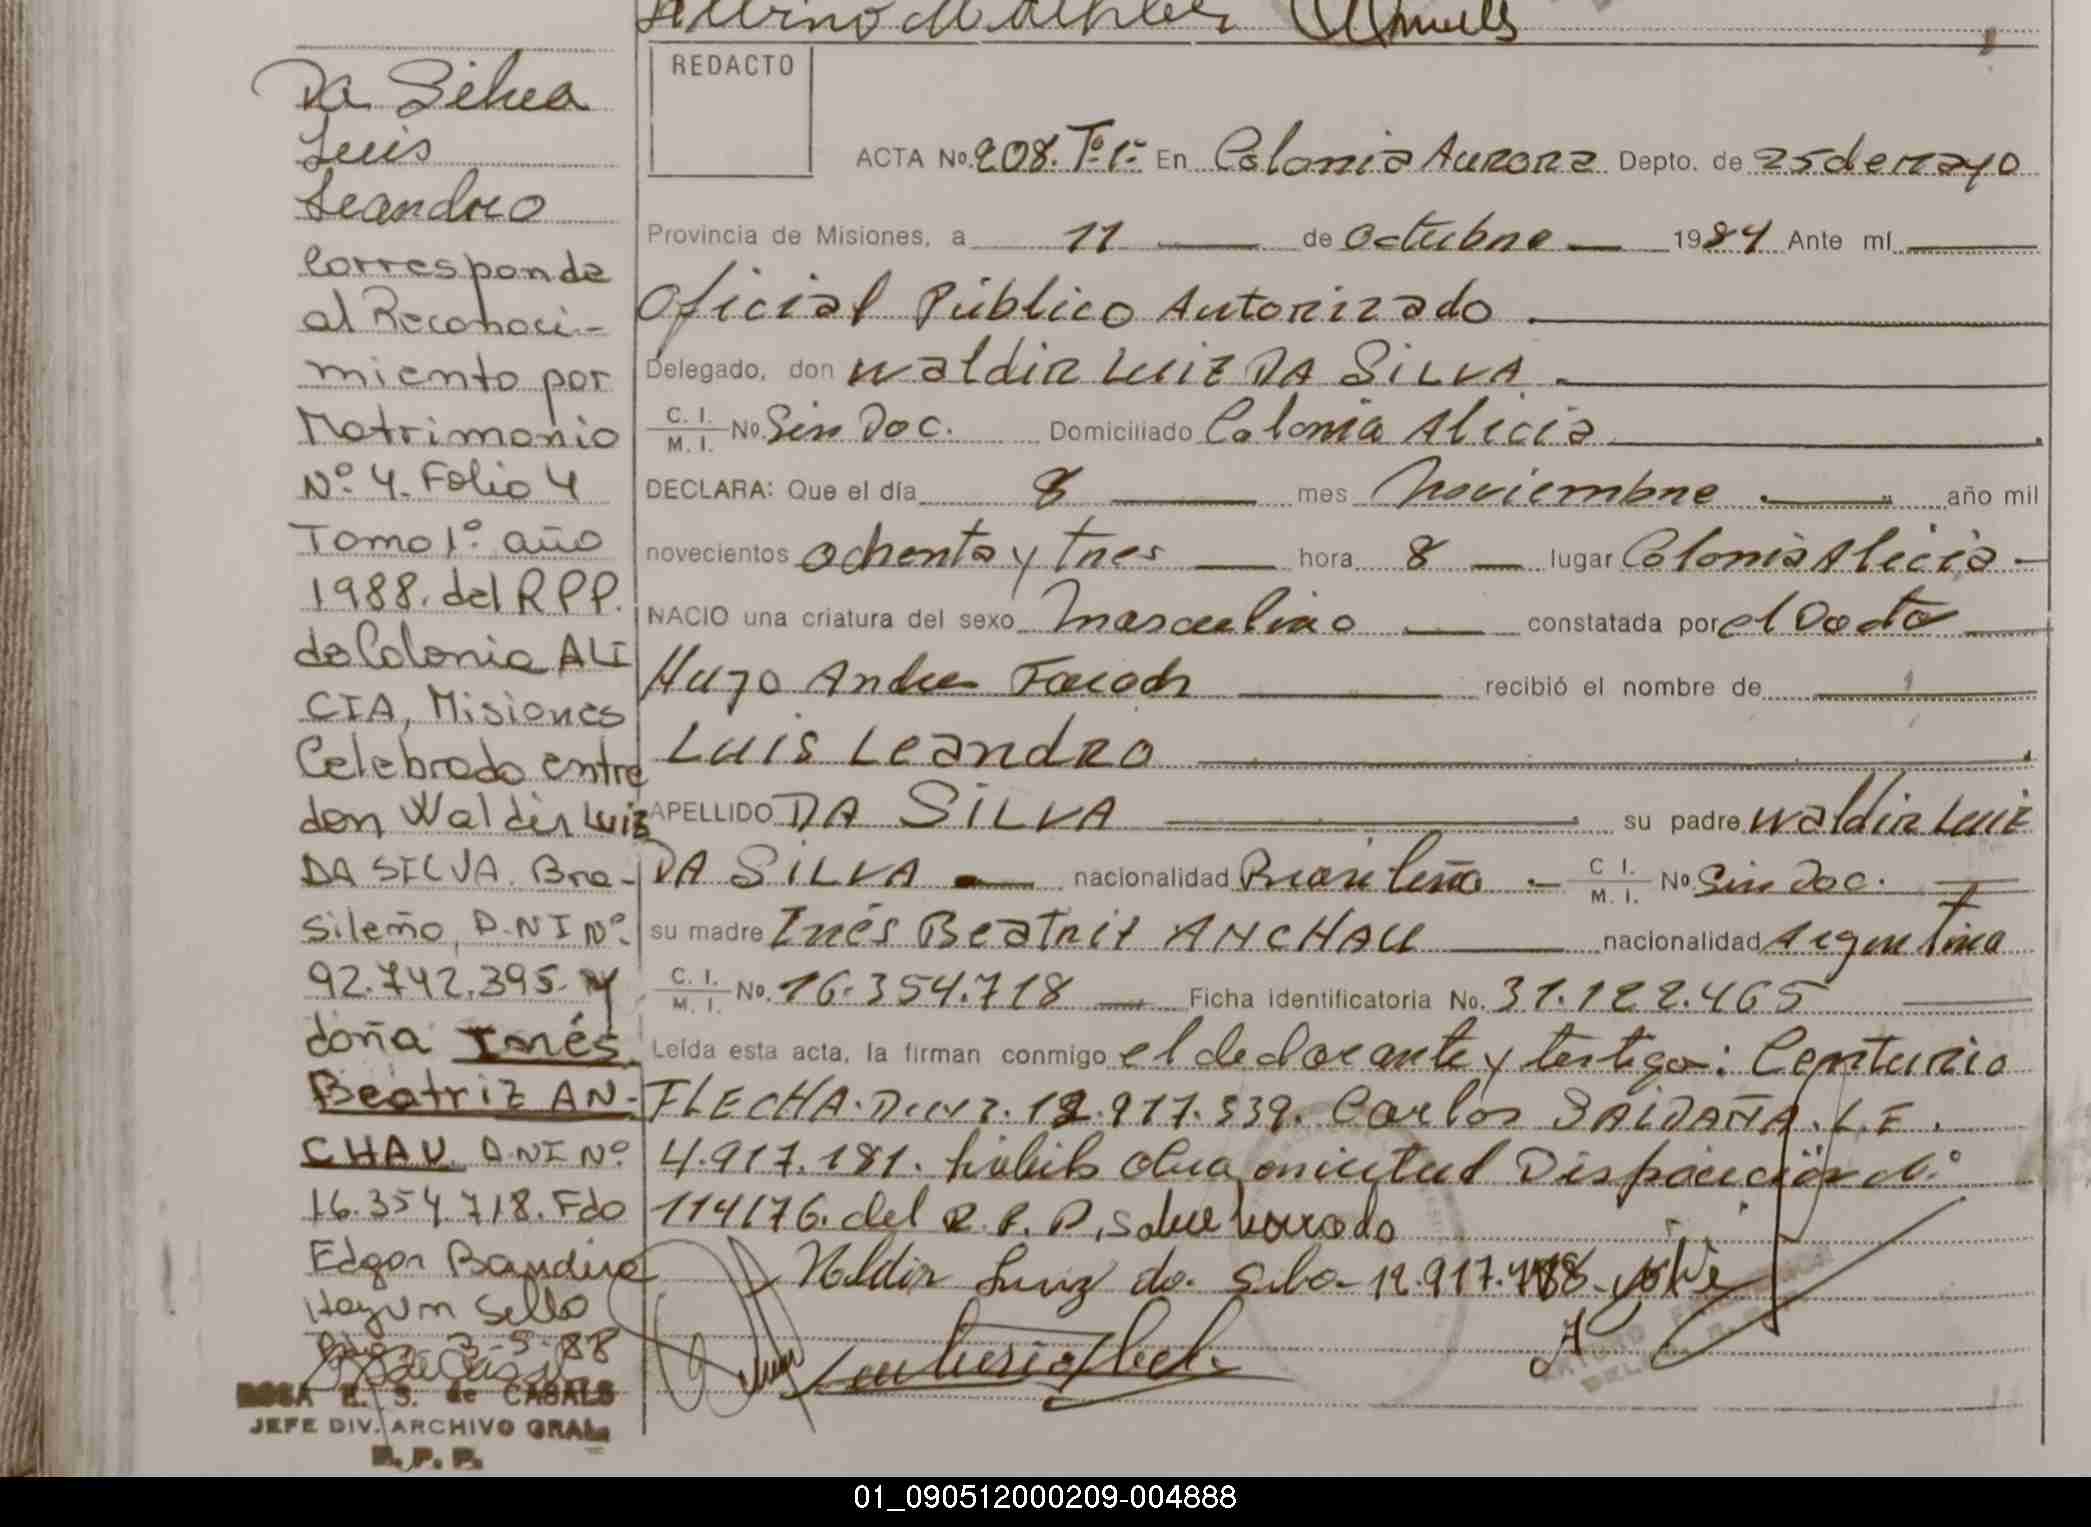 REDACTO
Da Silva
Luis
Leandro
Corresponde
al Reconoci-
miento por
Matrimonio
Nº 4. Folio 4
Tomo 1º año
1988. del R P P.
de Colonia ALI
CIA, Misiones
Celebrado entre
don Waldir Luiz
DA SILVA. Bra-
sileño, D.N.I Nº.
92.742.395. y
doña Inés
Beatriz AN-
CHAU D.NI Nº
16.354.718. Fdo
Edgar Bandera
Hayum Sello
3-5-88
ROSA E. S. de CASALS
JEFE DIV. ARCHIVO GRAL.
R. P. P.
ACTA No. 208. Tº 1º En Colonia Aurora Depto. de 25 de mayo
Provincia de Misiones, a 11 de octubre 1984 Ante mí
Oficial Público Autorizado
Delegado, don Waldir Luiz DA SILVA
C. I. M. I. No. Sin Doc. Domiciliado Colonia Alicia
DECLARA: Que el día 8 mes Noviembre año mil
novecientos ochenta y tres hora 8 lugar Colonia Alicia
NACIO una criatura del sexo Masculino constatada por el Doctor
Hugo Andres recibió el nombre de
Luis Leandro
APELLIDO DA SILVA su padre Waldir Luiz
DA SILVA nacionalidad Brasileña C I. M. I. No Sin Doc.
su madre Inés Beatriz ANCHAU nacionalidad Argentina
C. I. M. I. No. 16.354.718 Ficha identificatoria No. 31.122.465
Leída esta acta, la firman conmigo el declarante y testigo: Centurio
FLECHA. D.N.I. 12.917.539. Carlos SALDAÑA. L.E.
4.917.181. Disposición Nº
114/76. del R. P. P. sobre borrado
Waldir Luiz da Silva 12.917. vale
01_090512000209-004888